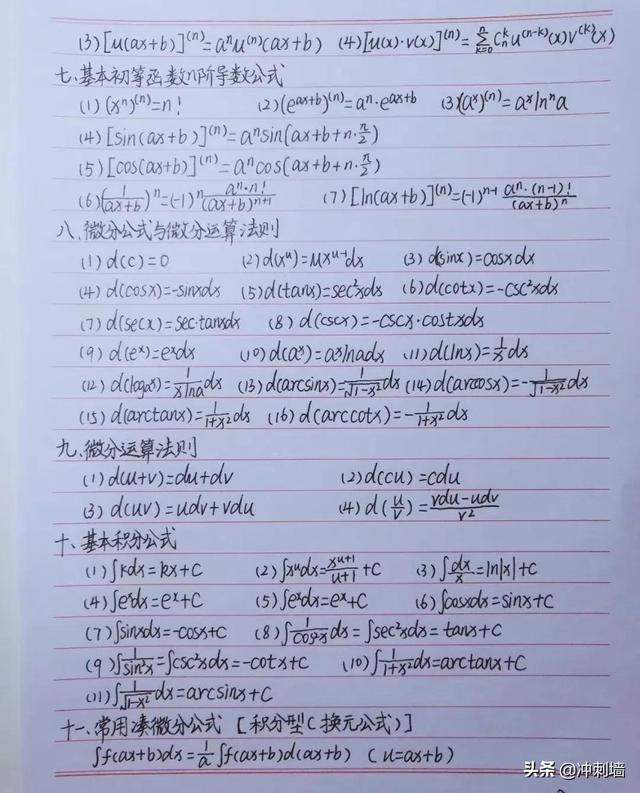 (3) [u(ax+b)]⁽ⁿ⁾=aⁿu⁽ⁿ⁾(ax+b) (4) [u(x)·v(x)]⁽ⁿ⁾=∑ₖ₌₀ⁿ Cₙᵏu⁽ⁿ⁻ᵏ⁾(x)v⁽ᵏ⁾(x)
七、基本初等函数n阶导数公式
(1) (xⁿ)⁽ⁿ⁾=n! (2) (eᵃˣ⁺ᵇ)⁽ⁿ⁾=aⁿ·eᵃˣ⁺ᵇ (3) (aˣ)⁽ⁿ⁾=aˣlnⁿa
(4) [sin(ax+b)]⁽ⁿ⁾=aⁿsin(ax+b+n·π/2)
(5) [cos(ax+b)]⁽ⁿ⁾=aⁿcos(ax+b+n·π/2)
(6) (1/(ax+b))ⁿ=(-1)ⁿ aⁿ·n!/(ax+b)ⁿ⁺¹ (7) [ln(ax+b)]⁽ⁿ⁾=(-1)ⁿ⁻¹ aⁿ·(n-1)!/(ax+b)ⁿ
八、微分公式与微分运算法则
(1) d(c)=0 (2) d(xᵘ)=μxᵘ⁻¹dx (3) d(sinx)=cosxdx
(4) d(cosx)=-sinxdx (5) d(tanx)=sec²xdx (6) d(cotx)=-csc²xdx
(7) d(secx)=sec·tanxdx (8) d(cscx)=-cscx·costxdx
(9) d(eˣ)=eˣdx (10) d(aˣ)=aˣlnadx (11) d(lnx)=1/x dx
(12) d(logaˣ)=1/(xlna) dx (13) d(arcsinx)=1/√(1-x²) dx (14) d(arccosx)=-1/√(1-x²) dx
(15) d(arctanx)=1/(1+x²) dx (16) d(arccotx)=-1/(1+x²) dx
九、微分运算法则
(1) d(u+v)=du+dv (2) d(cu)=cdu
(3) d(uv)=udv+vdu (4) d(u/v)=(vdu-udv)/v²
十、基本积分公式
(1) ∫kdx=kx+C (2) ∫xᵘdx=xᵘ⁺¹/(u+1)+C (3) ∫dx/x=ln|x|+C
(4) ∫eˣdx=eˣ+C (5) ∫eˣdx=eˣ+C (6) ∫cosxdx=sinx+C
(7) ∫sinxdx=-cosx+C (8) ∫1/cos²x dx=∫sec²xdx=tanx+C
(9) ∫1/sin²x=∫csc²xdx=-cotx+C (10) ∫1/(1+x²) dx=arctanx+C
(11) ∫1/√(1-x²) dx=arcsinx+C
十一、常用凑微分公式 [积分型(换元公式)]
∫f(ax+b)dx=1/a ∫f(ax+b)d(ax+b) (u=ax+b)
头条 @冲刺墙